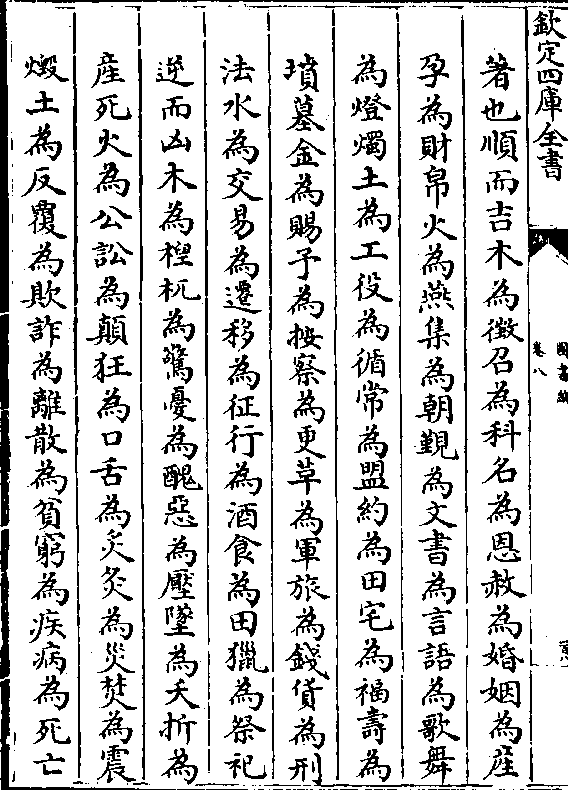 欽定四庫全書
圖書編
卷八
著也順而吉木為徵召為科名為恩赦為婚姻為產
孕為財帛火為燕集為朝覲為文書為言語為歌舞
為燈燭土為工役為循常為盟約為田宅為福壽為
墳墓金為賜予為按察為更草為軍旅為錢貨為刑
法水為交易為遷移為征行為酒食為田獵為祭祀
逆而凶木為桎杌為驚憂為醜惡為壓墜為夭折為
產死火為公訟為顛狂為口舌為炙灸為災焚為震
燬土為反覆為欺詐為離散為貧窮為疾病為死亡